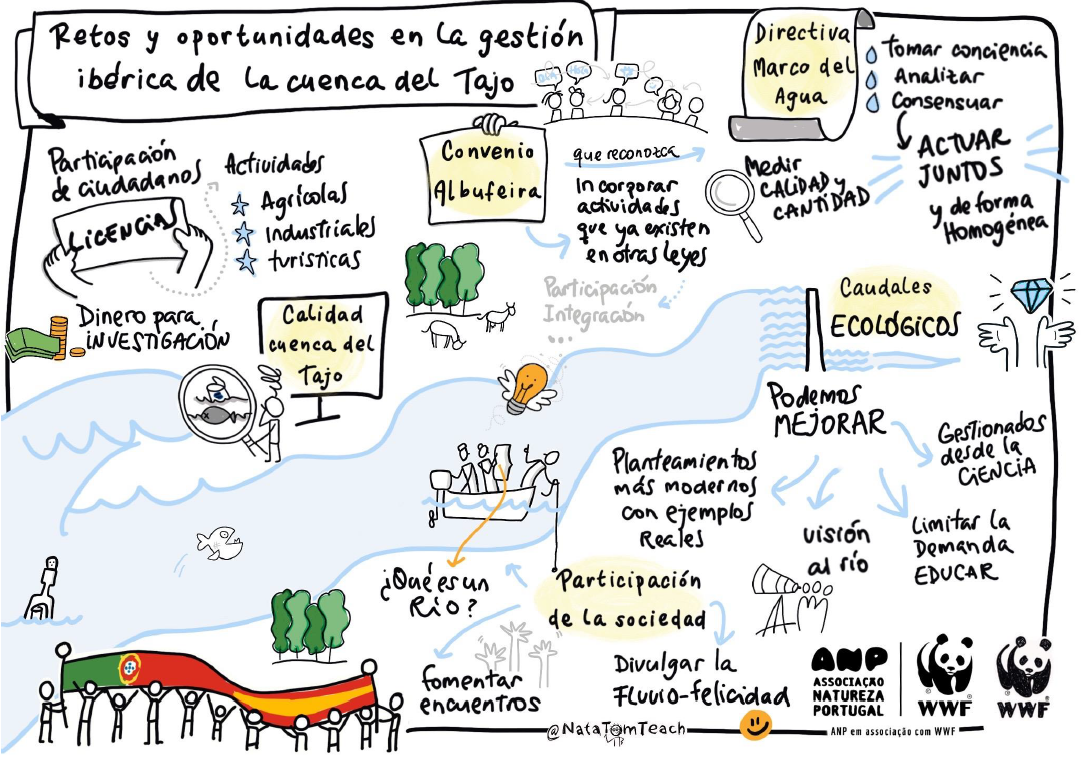 Retos y oportunidades en la gestión
ibérica de la cuenca del Tajo
Directiva
Marco del
Agua
Tomar conciencia
Analizar
Consensuar
ACTUAR
JUNTOS
y de forma
Homogénea
Participación
de ciudadanos
LICENCIAS
Actividades
Agrícolas
Industriales
turísticas
Convenio
Albufeira
que reconozca
Incorporar
actividades
que ya existen
en otras leyes
Medir
CALIDAD y
CANTIDAD
Participación
Integración
...
Dinero para
INVESTIGACIÓN
Calidad
cuenca del
Tajo
Caudales
ECOLÓGICOS
Podemos
MEJORAR
Gestionados
desde la
CIENCIA
Planteamientos
más modernos
con ejemplos
Reales
visión
al río
Limitar la
Demanda
EDUCAR
¿Qué es un
Río?
Participación
de la sociedad
fomentar
encuentros
Divulgar la
Fluvio-felicidad
@NataTomTeach
ANP
ASSOCIAÇÃO
NATUREZA
PORTUGAL
WWF
WWF
ANP em associação com WWF